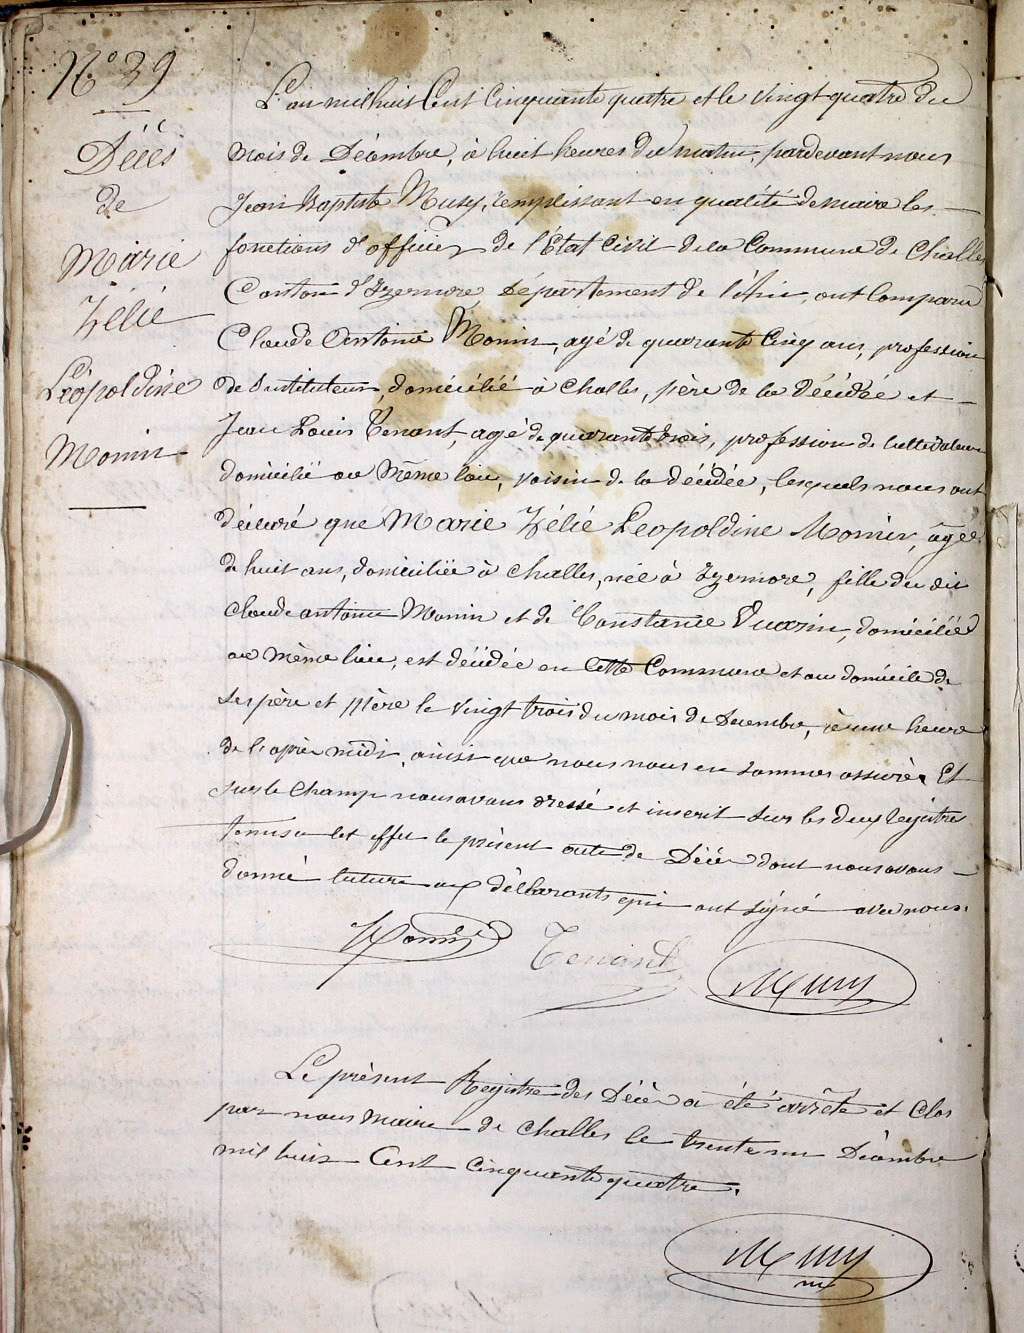 N° 39
Décès
de
Marie
Zélie
Léopoldine
Monin
L'an mil huit Cent Cinquante quatre et le Vingt quatre du
mois de Décembre, à huit heures du matin, pardevant nous
Jean Baptiste Musy, remplissant en qualité de maire les
fonctions d'officier de l'État Civil de la Commune de Challes
Canton d'Izernore, Département de l'Ain, ont Comparu
Claude Antoine Monin, agé de quarante Cinq ans, profession
de Instituteur, domicilié à Challes, père de la Décédée et
Jean Louis Tenant, agé de quarante trois, profession de Cultivateur
domicilié au Même lieu, Voisin de la décédée, lesquels nous ont
déclaré que Marie Zélie Léopoldine Monin, âgée
de huit ans, domiciliée à Challes, née à Izernore, fille du dit
Claude antoine Monin et de Constance, domiciliés
au même lieu, est décédée en Cette Commune et au domicile de
ses père et Mère le Vingt trois du mois de Décembre, à une heure
de l'après midi, ainsi que nous nous en sommes assuré. Et
sur le Champ nous avons dressé et inscrit sur les deux registres
tenus a cet effet le présent acte de Décès dont nous avons
donné lecture aux déclarants qui ont signé avec nous.
Monin Tenant Musy
Le présent Registre des Décès a été arrêté et Clos
par nous Maire de Challes le trente un Décembre
mil huit Cent Cinquante quatre.
Musy